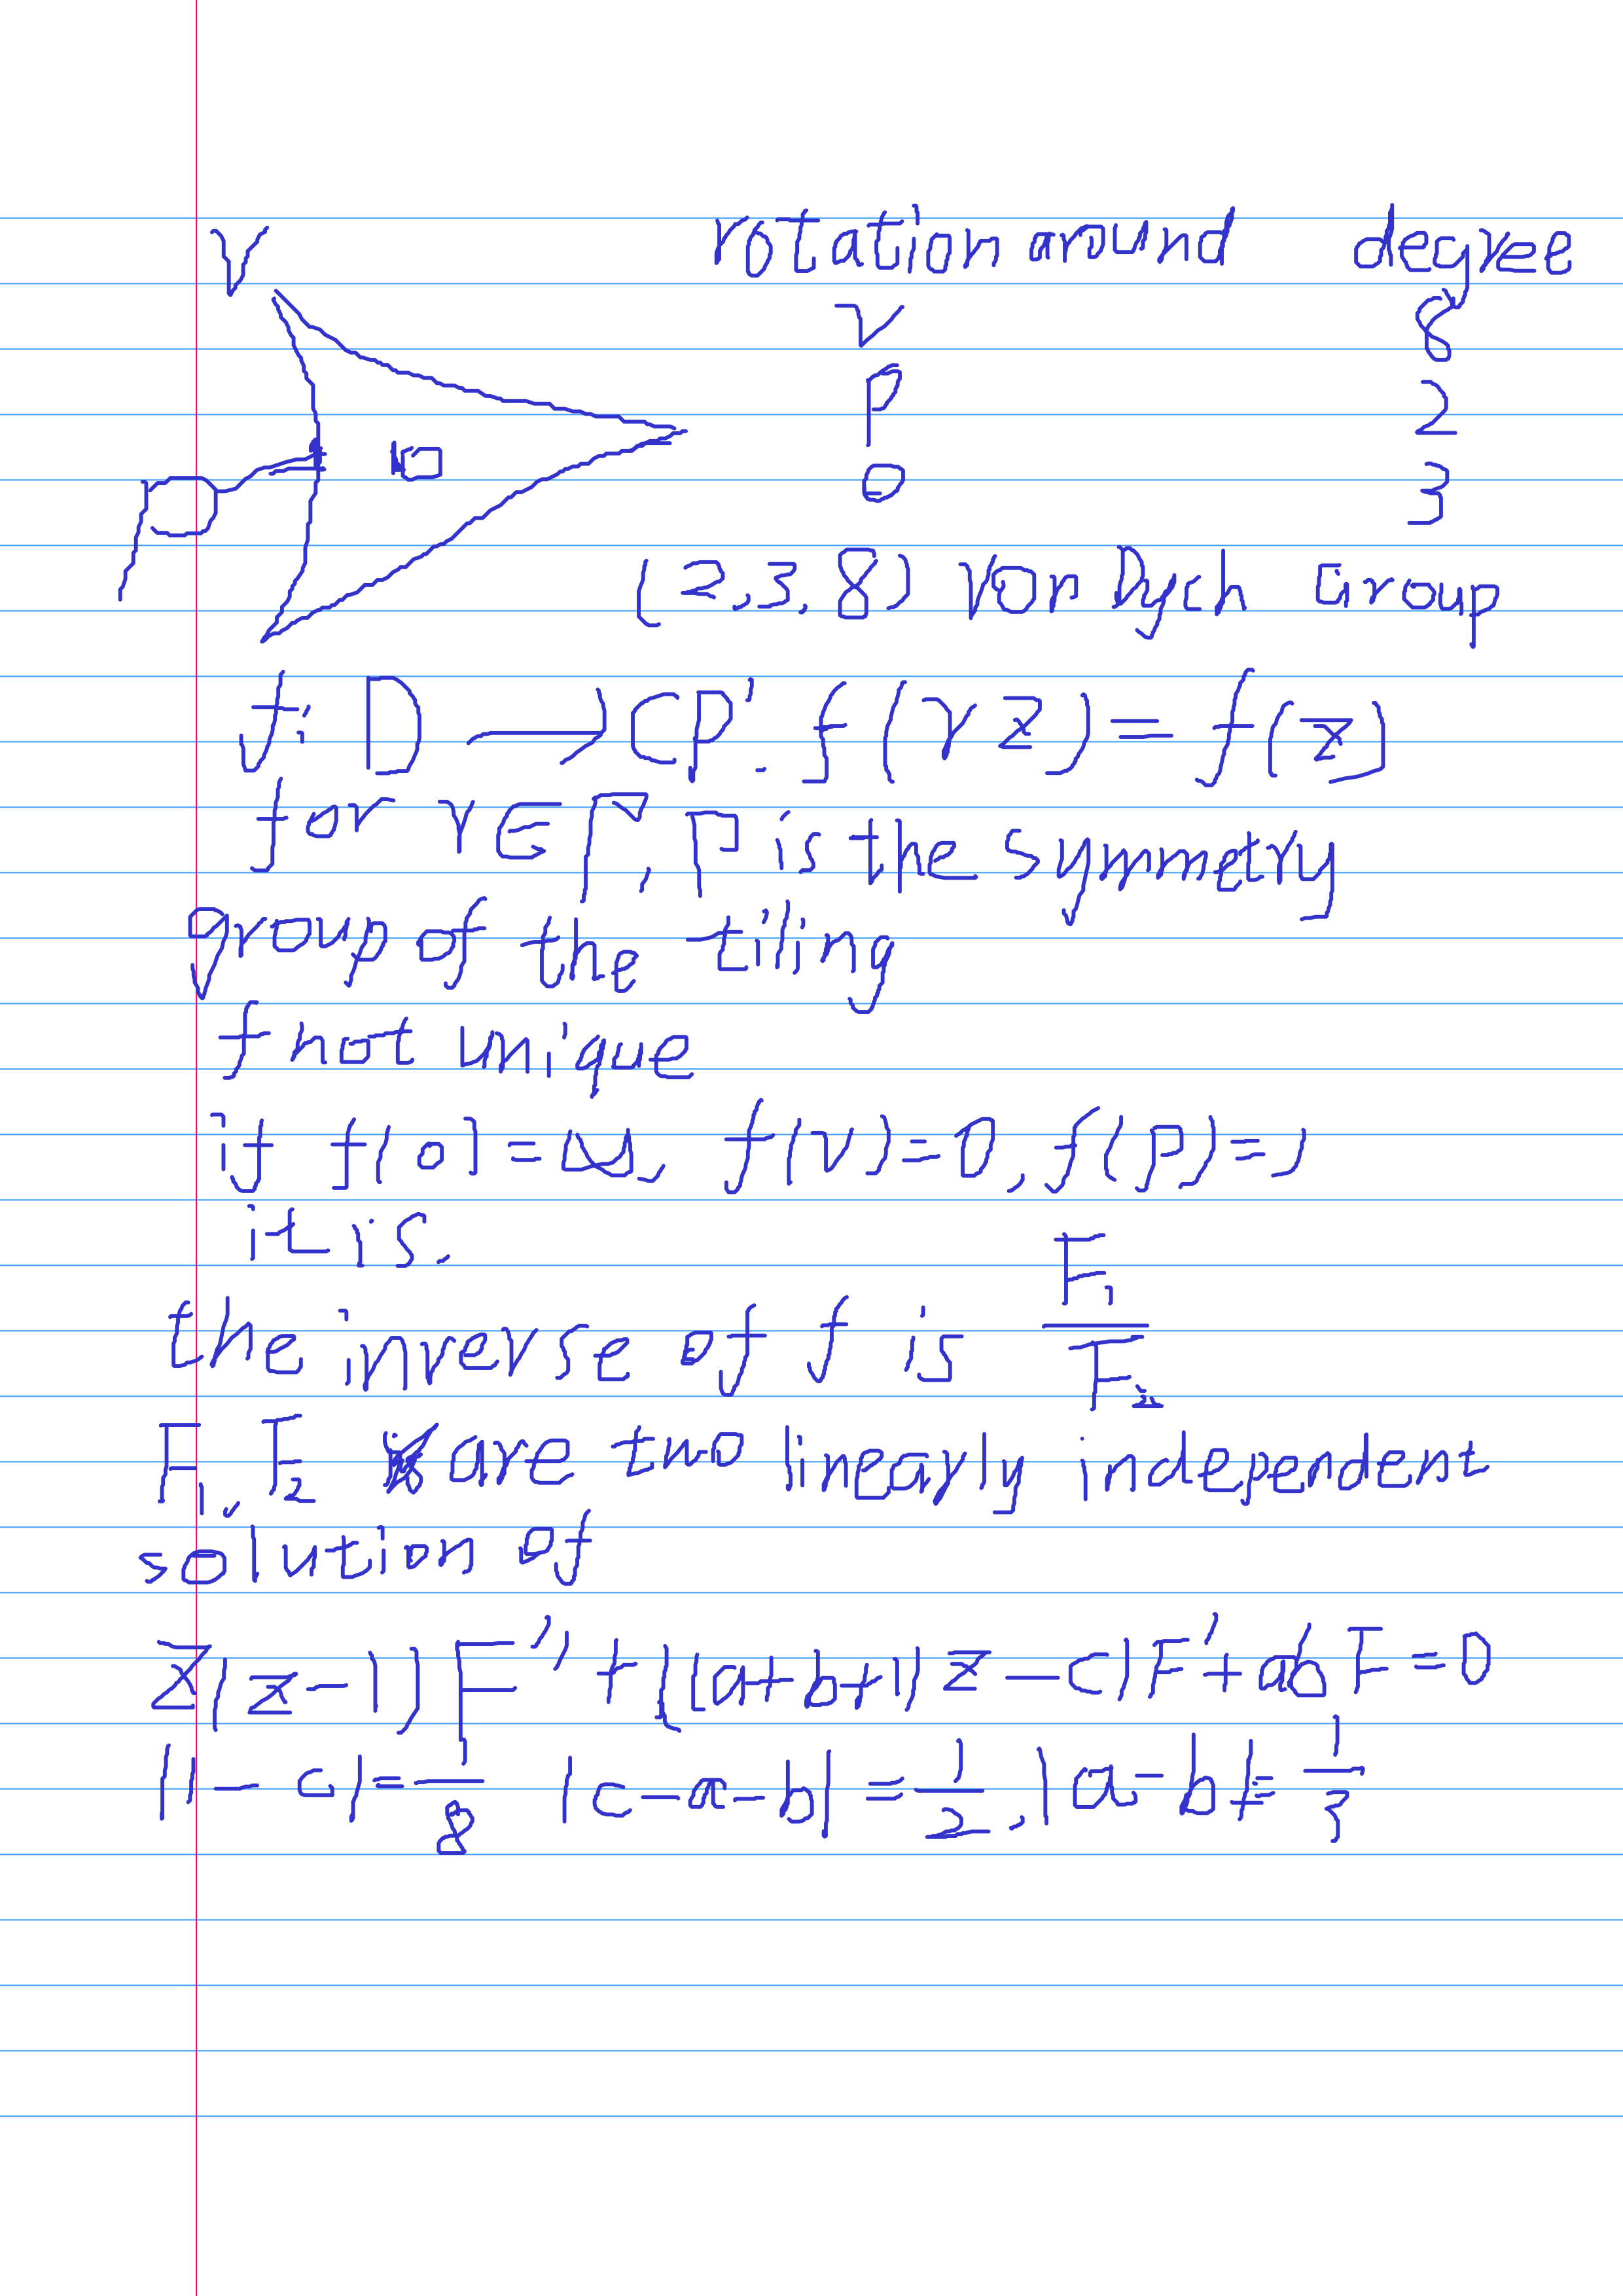 V
rotation around degree
V 8
P 2
O 3
O
P
(2,3,8) von Dyck Group
f: D → CP¹. f(γz) = f(z)
for γ ∈ Γ, Γ is the symmetry
group of the tiling
f not unique
if f(0) = ∞, f(V) = 0, f(P) = 1
it is.
the inverse of f is F₁/F₂
F₁, F₂ are two linearly independent
solution of
z(z-1)F'' + ((a+b+1)z-c)F' + abF = 0
|1-c| = 1/8 |c-a-b| = 1/2, |a-b| = 1/3